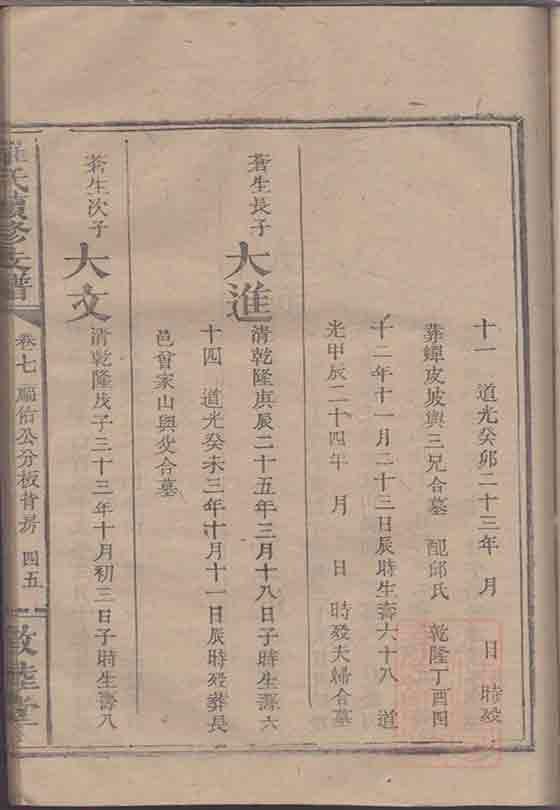 十一 道光癸卯二十三年 月 日 時殁
葬蟬皮坡與三兄合墓 配邱氏 乾隆丁酉四
十二年十一月二十三日辰時生壽六十八 道
光甲辰二十四年 月 日 時殁夫婦合墓
蒼生長子
大進
清乾隆庚辰二十五年三月十八日子時生壽六
十四 道光癸未三年十月十一日辰時殁葬長
邑曾家山與父合墓
蒼生次子
大文
清乾隆戊子三十三年十月初三日子時生壽八
氏續修支譜
卷七 順佑公分板背房 四五
敦睦堂